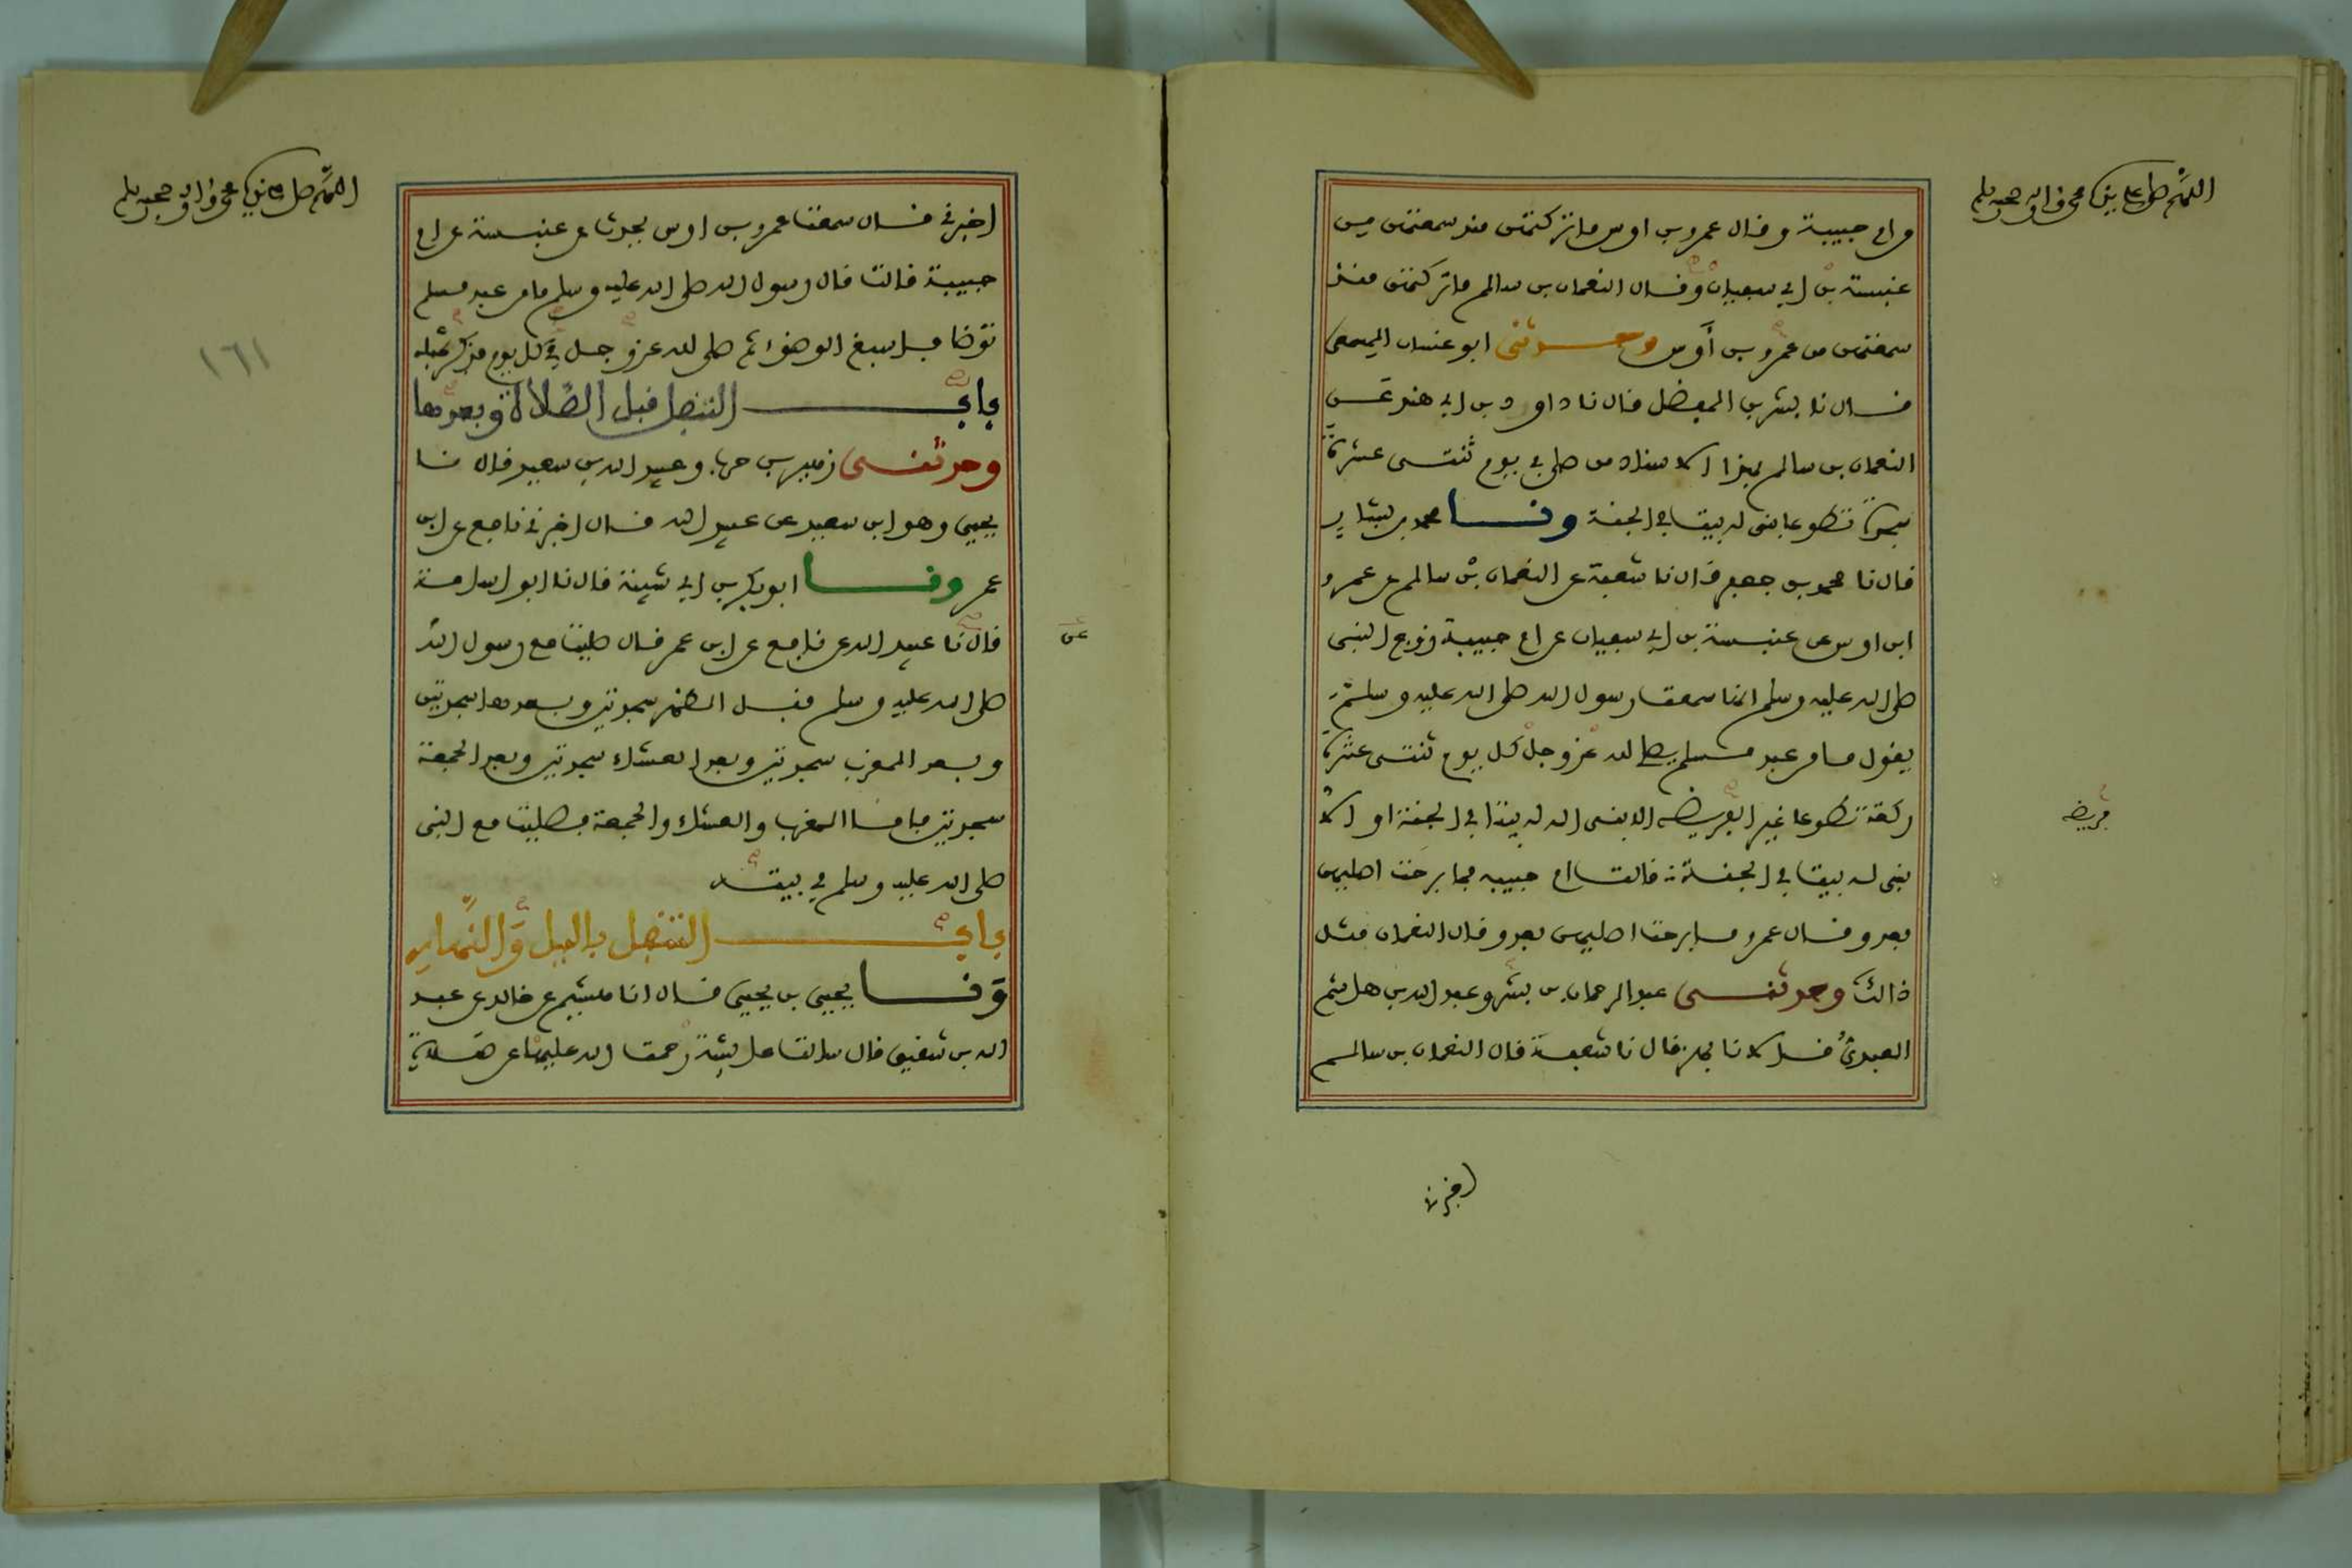 اللهم صل على نبيك محمد واله وصحبه وسلم
من ام حبيبة وقال عمرو بن اوس ما تركتهن منذ سمعتهن من
عنبسة بن ابي سفيان وقال النعمان بن سالم ما تركتهن منذ
سمعتهن من عمرو بن أوس وحدثني ابو غسان المسمعي
قال نا بشر بن المفضل قال نا داود بن ابي هند عن
النعمان بن سالم بهذا الاسناد من صلى في يوم ثنتي عشرة
سجدة تطوعا بني له بيت في الجنة ونا محمد بن بشار
قال نا محمد بن جعفر قال نا شعبة عن النعمان بن سالم عن عمرو
ابن اوس عن عنبسة بن ابي سفيان عن ام حبيبة زوج النبي
صلى الله عليه وسلم انها سمعت رسول الله صلى الله عليه وسلم
يقول ما من عبد مسلم يصلي لله عز وجل كل يوم ثنتي عشرة
ركعة تطوعا غير الفريضة الا بنى الله له بيتا في الجنة او الا
فريضة
بني له بيت في الجنة قالت ام حبيبه فما برحت اصليهن
بعد وقال عمرو ما برحت اصليهن بعد وقال النعمان مثل
ذالك وحدثني عبد الرحمان بن بشر وعبد الله بن هاشم
العبدي قالا نا بهز قال نا شعبة قال النعمان بن سالم
اخبرني
اللهم صل على نبيك محمد واله وصحبه وسلم
اخبرني قال سمعت عمرو بن اوس يحدث عن عنبسة عن ام
حبيبة قالت قال رسول الله صلى الله عليه وسلم ما من عبد مسلم
توضا فاسبغ الوضوء ثم صلى لله عز وجل في كل يوم فذكر مثله
١٦١
باب التنفل قبل الصلاة وبعدها
وحدثني زهير بن حرب وعبيد الله بن سعيد قالا نا
يحيى وهو ابن سعيد عن عبيد الله قال اخبرني نافع عن ابن
عمر ونا ابو بكر بن ابي شيبة قال نا ابو اسامة
قال نا عبيد الله عن نافع عن ابن عمر قال صليت مع رسول الله
عن
صلى الله عليه وسلم قبل الظهر سجدتين وبعدها سجدتين
وبعد المغرب سجدتين وبعد العشاء سجدتين وبعد الجمعة
سجدتين فاما المغرب والعشاء والجمعة فصليت مع النبي
صلى الله عليه وسلم في بيته
باب التنفل بالليل والنهار
ونا يحيى بن يحيى قال انا هشيم عن خالد عن عبد
الله بن شقيق قال سالت عايشة رحمت الله عليها عن صلاة